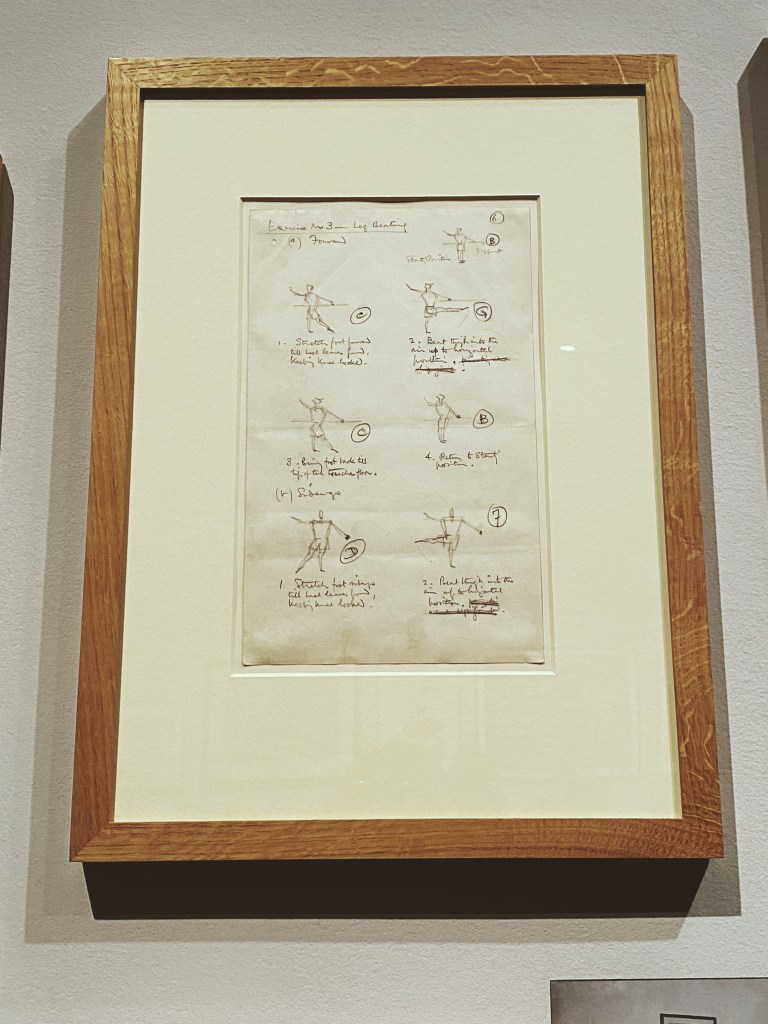 Exercise No 3 — Leg Beating
6
(a) Forward
B
Start Position
C
G
1. Stretch foot forward
till heel leaves ground,
keeping knee locked.
2. Beat thigh into the
air up to horizontal
position.
C
B
3. Bring foot back till
tip of toe touches floor.
4. Return to Start
position.
(b) Sideways
D
7
1. Stretch foot sideways
till heel leaves ground,
keeping knee locked.
2. Beat thigh into the
air up to horizontal
position.